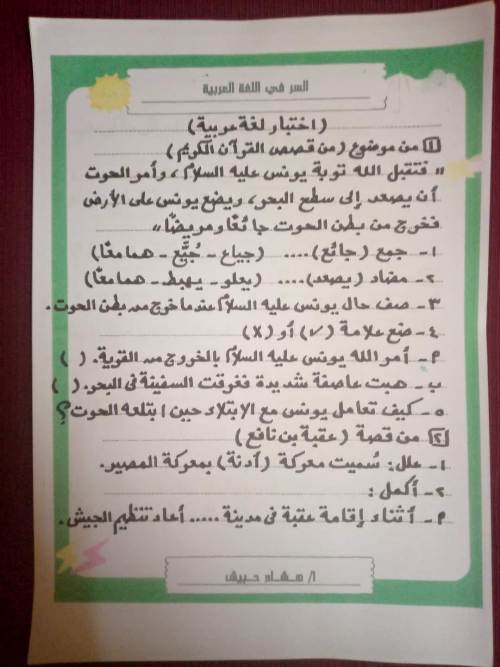 السر في اللغة العربية
(اختبار لغة عربية)
١ من موضوع (من قصص القرآن الكريم)
" فتقبل الله توبة يونس عليه السلام، وأمر الحوت
أن يصعد إلى سطح البحر، ويضع يونس على الأرض
فخرج من بطن الحوت جائعًا ومريضًا "
١- جمع (جائع).... (جياع - جُيَّع - هما معًا)
٢- مضاد (يصعد).... (يعلو - يهبط - هما معًا)
٣- صف حال يونس عليه السلام عندما خرج من بطن الحوت.
٤- ضع علامة (✓) أو (X)
٩- أمر الله يونس عليه السلام بالخروج من القرية. ( )
ب- هبت عاصفة شديدة فغرقت السفينة فى البحر. ( )
٥- كيف تعامل يونس مع الإبتلاء حين ابتلعه الحوت؟
٢ من قصة (عقبة بن نافع)
١- علل: سُميت معركة (أدنة) بمعركة المصير.
٢- أكمل:
٩- أثناء إقامة عقبة فى مدينة ..... أعاد تنظيم الجيش.
ا/ هشام حبيش